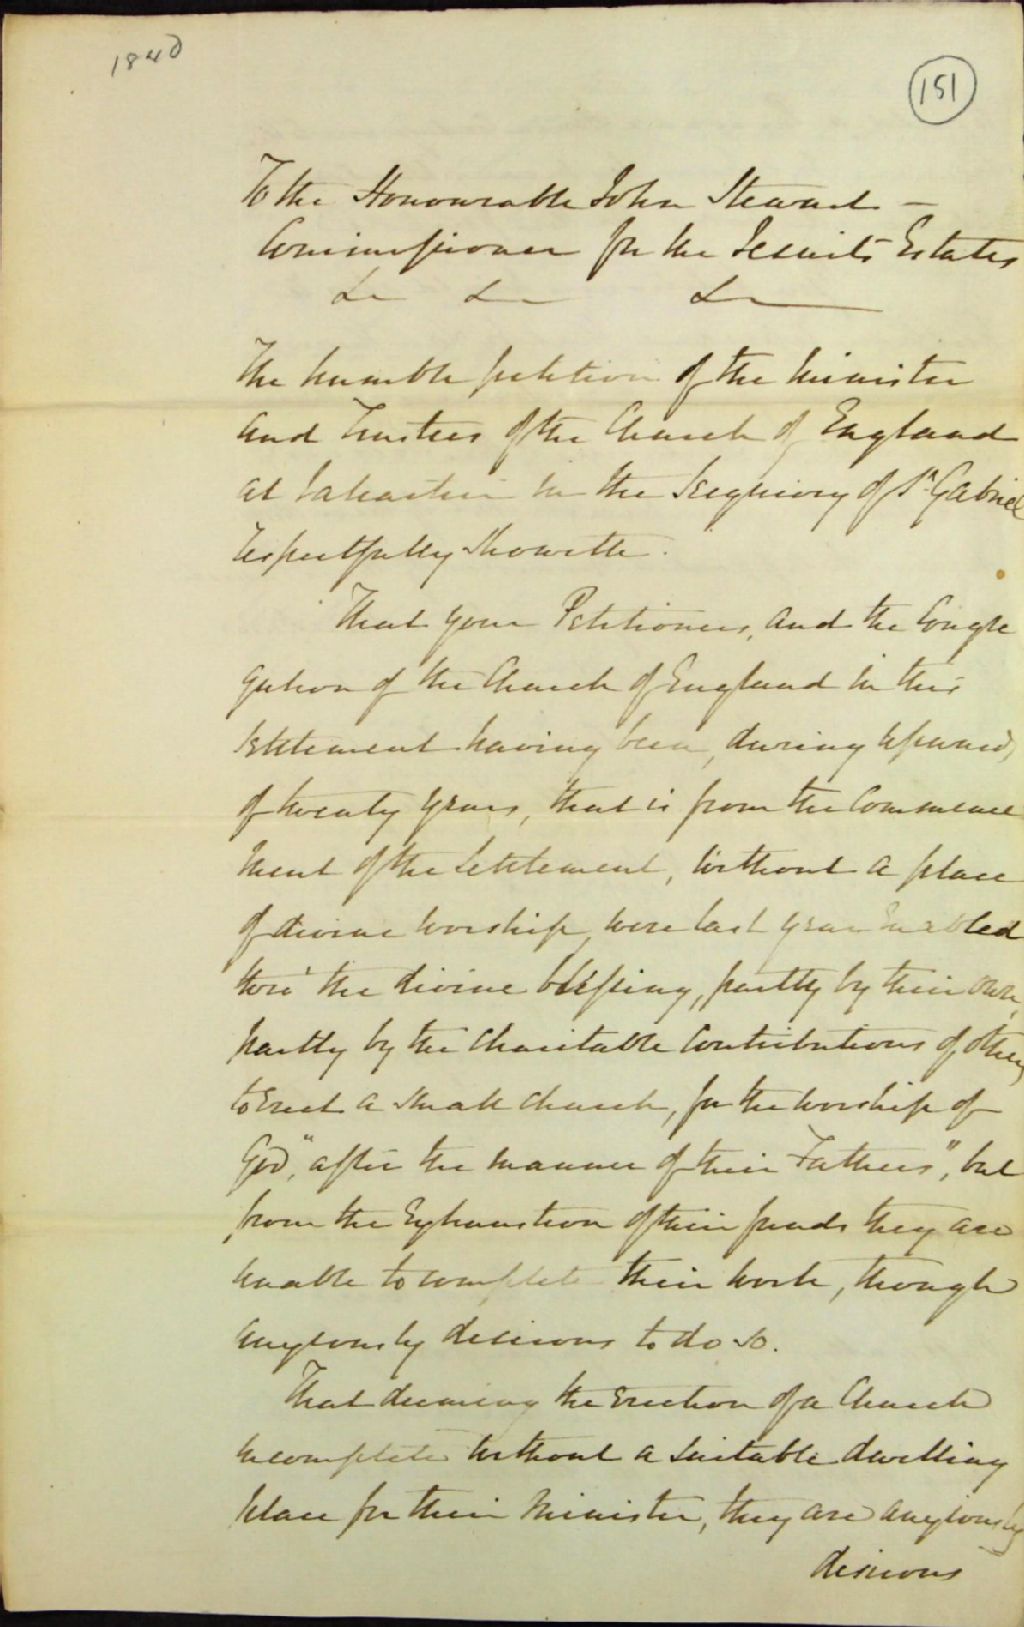 1840
151
To the Honourable John Stewart –
Commissioner for the Jesuits Estates
&c &c &c
The humble petition of the Minister
and Trustees of the Church of England
at Valcartier in the Seigniory of St Gabriel
respectfully Showeth.
That your Petitioners, and the Congre
gation of the Church of England in this
Settlement having been, during upwards
of twenty years, that is from the Commence
ment of the Settlement, without a place
of divine worship, were last year enabled
thro' the divine blessing, partly by their own,
partly by the Charitable Contributions of others
to Erect a small Church, for the worship of
God, "after the manner of their Fathers", but
from the Exhaustion of their funds they are
unable to complete their work, though
anxiously desirous to do so.
That deeming the Erection of a Church
incomplete without a suitable dwelling
place for their Minister, they are anxiously
desirous